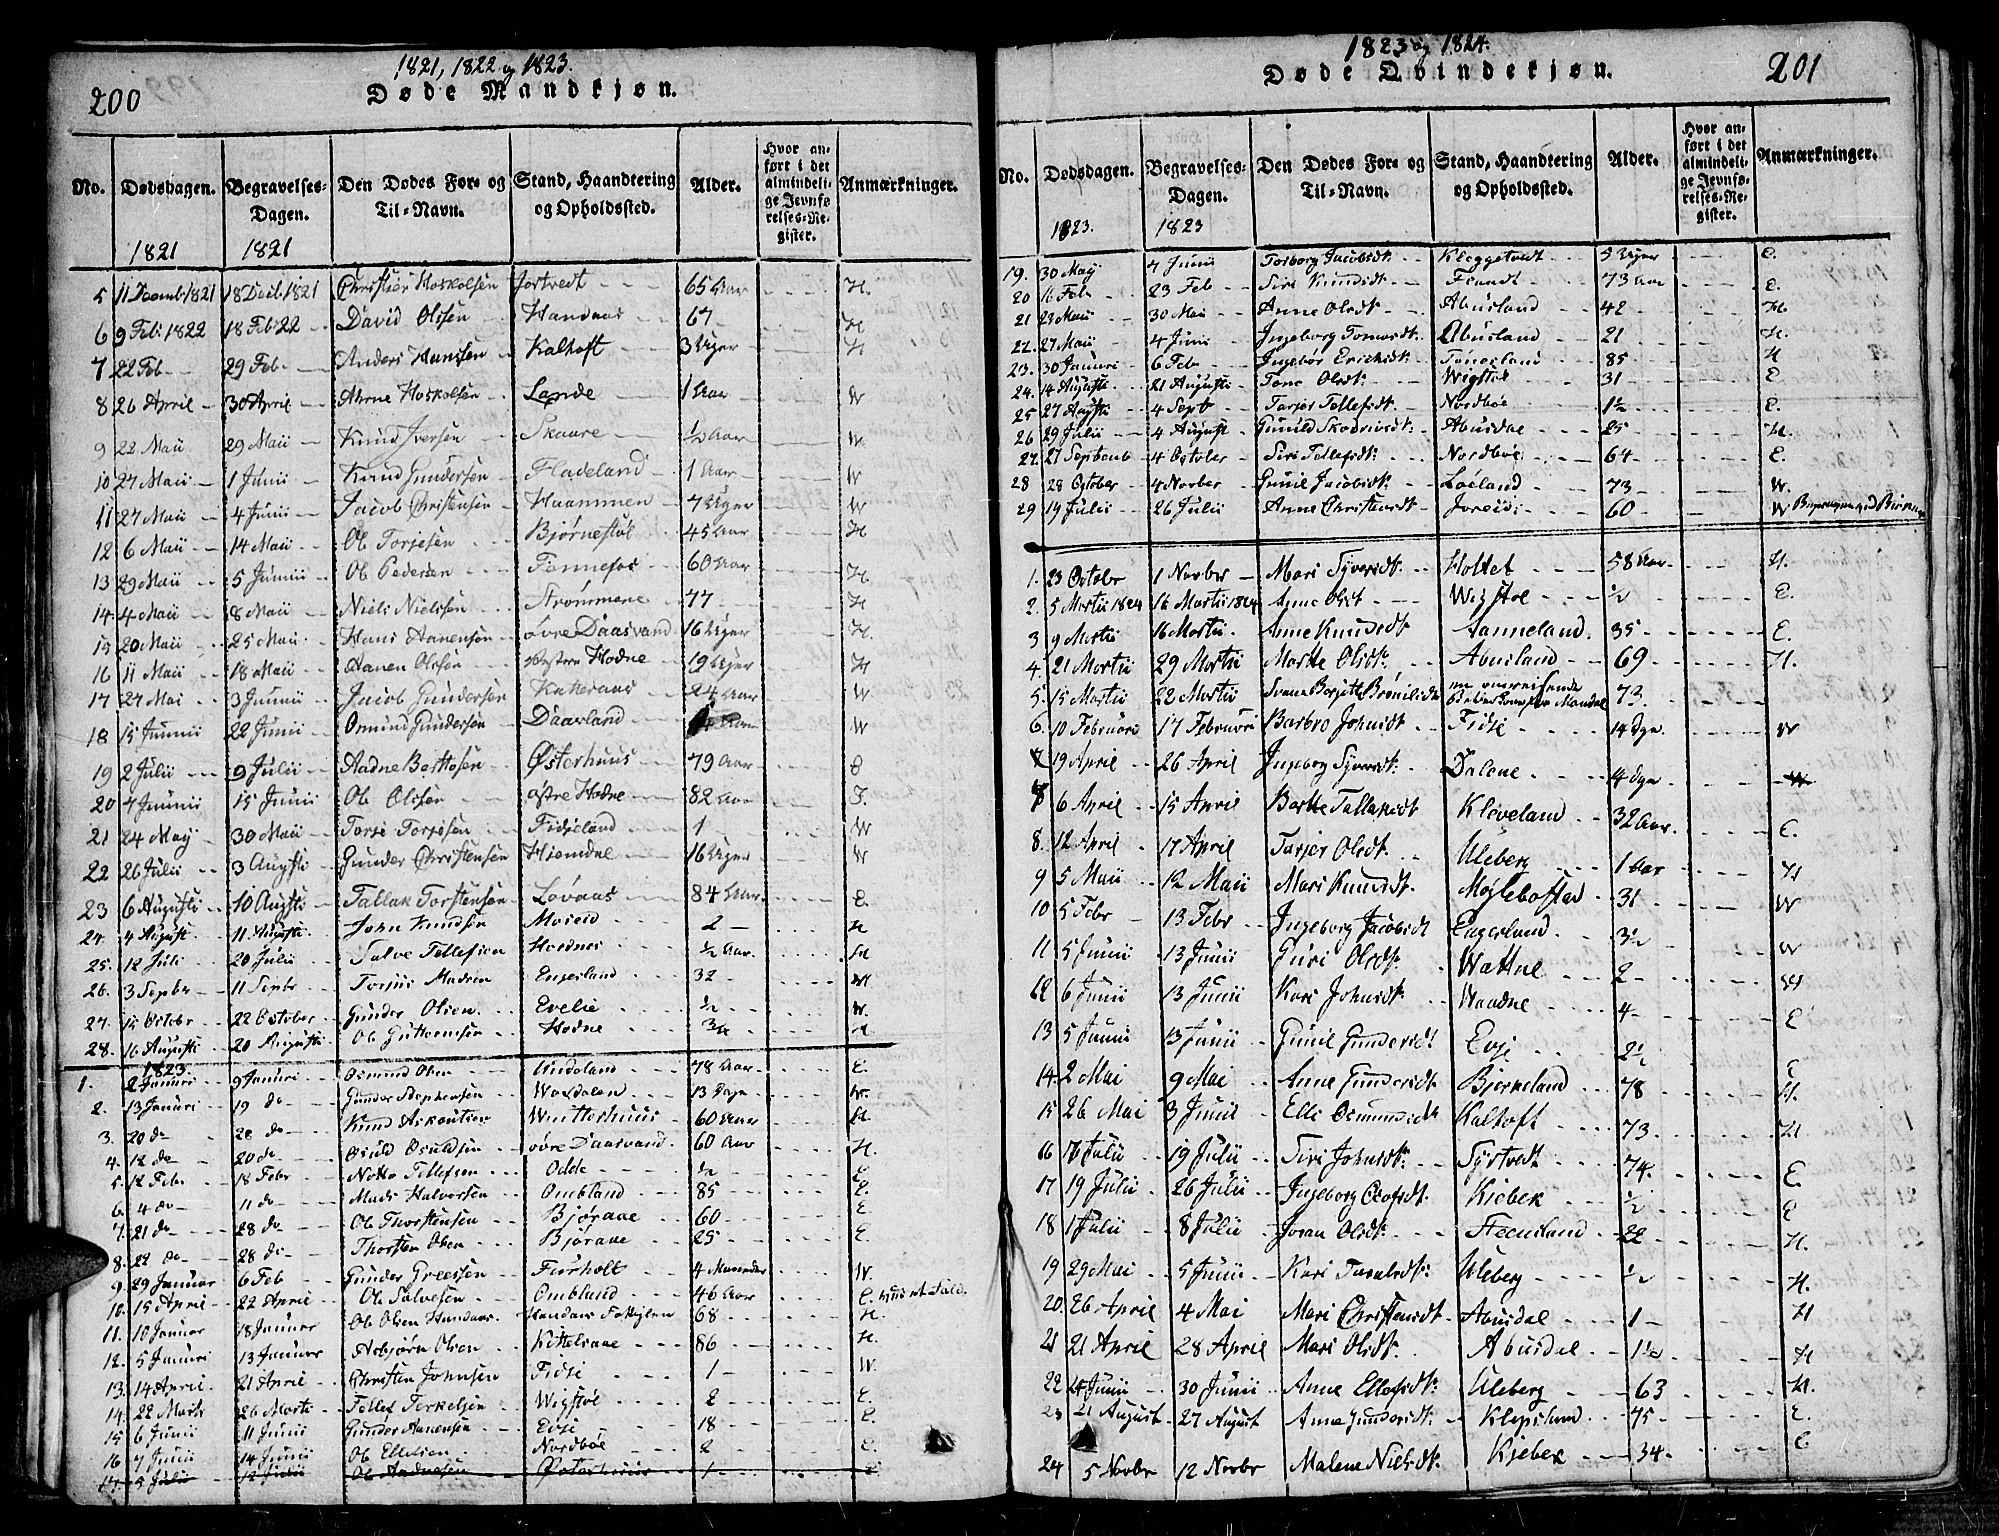 200
1821, 1822 og 1823.
Døde Mandkjøn.
No. Dødsdagen. Begravelses-Dagen. Den Dødes For- og Til-Navn. Stand, Haandtering og Opholdssted. Alder. Hvor anført i det almindelige Jevnførelses-Register. Anmærkninger.
1821 1821
5 11 Decemb 1821 18 Decb 1821 Christier Hoskolsen Jortvedt 65 Aar H.
6 9 Feb: 1822 18 Feb 22 David Olsen Handaas 67 H
7 22 Feb 29 Feb Anders Hanssen Kalhoft 3 Uger H
8 26 April 30 April Ahrne Hoskolsen Lande 1 Aar W
9 22 Maii 29 Maii Knud Iversen Skaare ½ Aar W.
10 27 Maii 1 Junii Knud Gundersen Fladeland 1 Aar W
11 27 Maii 4 Junii Jacob Christensen Haammen 7 Uger W
12 6 Maii 14 Maii Ole Torjesen Bjørnestøl 45 Aar H
13 29 Maii 5 Junii Ole Pedersen Fonnefos 60 Aar H.
14 4 Maii 8 Maii Niels Nielsen Strømmene 77 H
15 20 Maii 25 Maii Hans Aanensen øvre Daasvand 16 Uger H.
16 11 Maii 18 Maii Aanen Olsen Hodne 19 Uger H
17 27 Mai 3 Junii Jacob Gundersen Katteraas 24 Aar W
18 15 Junii 22 Junii Osmund Gundersen Daavland Aar W
19 2 Julii 9 Julii Aadne Berthosen Østerhuus 79 Aar E
20 7 Junii 15 Junii Ole Olsen østre Hodne 82 Aar
21 24 May 30 Maii Torje Torjesen Fidjeland 1 W
22 26 Julii 3 Augsti Gunder Christensen Hjemdal 16 Uger W
23 6 Augusti 10 Augsti Tallak Torstensen Løvaas 84 Aar E.
24 4 August 11 Augsti John Knudsen Moseid 2 H
25. 12 Juli 20 Julii Talve Tellefsen Hordnes ½ Aar H
26. 3 Sepbr 11 Sepbr Torjus Madsen Engesland 32 W
27. 15 Octobr 22 October Gunder Olsen Evelie ½ W.
28. 16 Augusti 20 Augusti Ole Guthormsen Hodne ¾ H
1823
1. 2 Januri 9 Januri Osmund Olsen Lindeland 78 Aar E.
2. 13 Januri 19 do Gunder Stephensen Wordalen 13 Dage W.
3. 20 do 28 do Knud Askoutsen Winterhuus 60 Aar H
4. 12 do 20 do Osuld Osuldsen øvre Daasvand 60 Aar H.
5. 12 Febr 18 Febr Notto Tellefsen Odde ½ E
6. 4 do 11 do Mads Halvorsen Ombland 85 E.
7. 21 do 28 do Ole Thorstensen Bjøraae 60 E
8. 22 do 28 do Thorsten Olsen Bjøraae 25 E
9. 29 Januar 6 Feb Gunder Greessen Furholt 4 Maaneder W.
10. 15 April 22 April Ole Salvesen Ombland 46 Aar E.
11. 10 Januar 18 Januar Ole Olsen Handaas Handaas 68 H.
12. 5 Januri 13 Januar Asbjørn Olsen Kittelsaae 86 H.
13. 14 April 21 April Christen Johnsen Fidje 1 W.
14. 22 Marti 26 Marti Tellef Terkelsen Wigstøl 2 E.
15 6 Junii 11 Junii Gunder Aanensen Evje 18 E.
16 7 Junii 14 Junii Ole Ellefsen Nordbøe 2 E.
17. 5 Julii 12 Julii Ole Aadnesen Østerhuus 1 E
1823 og 1824.
Døde Qvindekjøn.
201
No. Dødsdagen. Begravelses-Dagen. Den Dødes For- og Til-Navn. Stand, Haandtering og Opholdssted. Alder. Hvor anført i det almindelige Jevnførelses-Register. Anmærkninger.
1823. 1823
19. 30 May 7 Junii Torborg Jacobsdt Kleggetvedt 5 Uger E.
20 16 Feb 23 Feb Siri Knudsdt Feundt 73 Aar E.
21 23 Maii 30 Mai Anne Olsdt Abusland 42 H.
22. 27 Maii 4 Junii Ingeborg Tomasdt Abusland 21 H.
23. 30 Januri 6 Feb Ingebor Erichsdt Tonesland 85 H
24. 14 Augusti 21 Augusti Tone Olsdt Wigstøl 31 E.
25 27 Augsti 4 Septb Tarjer Tellefsdt Nordbøe 1½ E.
26 29 Julii 4 August Gunild Skodvedt Abusdal 25 H.
27. 27 Septemb 4 Octobr Siri Tellefsdt Nordbøe 64 E.
28 28 October 4 Norber Gunil Jacobsdt Løeland 73 W.
29 19 Julii 26 Julii Anne Christensdt Joreid 60 W
1. 23 Octobr 1 Novbr Mari Syversdt Holtet 58 Aar H.
2. 5 Martii 1824 16 Martii 1824 Anne Olsdt Wigstøl ½ E.
3 9 Martii 16 Martii Anne Knudsdt Aanneland 35 E.
4. 21 Martii 29 Martii Marthe Olsdt Abusland 69 H.
5. 15 Martii 22 Martii Svane Borgitte en omreisende 73
6. 10 Februari 17 Februari Barbro Johnsdt Fidje 14 Dge W
7 19 April 26 April Ingeborg Syversdt Dalene 4 Dge W
7 6 April 15 April Berthe Tallaksdt Kleveland 32 Aar. E.
8. 12 April 17 April Tarjer Olsdt Uleberg 1 Aar H
9 5 Maii 12 Maii Mari Knudsdt Møglebøstad 31 W
10 5 Febr 13 Febr Ingeborg Jacobsdt Engesland 3½ W
11 5 Junii 13 Junii Guri Olsdt Wattne 2 W
12 6 Junii 13 Junii Kari Johnsdt Waadne 4 E
13 5 Junii 13 Junii Gunil Gundersdt Evje 2½ E
14. 2 Mai 9 Mai Anne Gundersdt Bjorneland 78 H.
15 26 Mai 3 Junii Elli Osmundsdt Kalhoft 73. H
16 10 Julii 19 Julii Siri Johnsdt Syrtvedt 74. E.
17 19 Julii 26 Julii Ingeborg Olofsdt Kjebek ½ E
18 1 Julii 8 Julii Joran Olsdt 22 H.
19 29 Mai 5 Junii Kari Uleberg ½ H.
20. 26 April 4 Mai Mari Christensdt Abusdal 1 H
21 21 April 28 April Mari Olsdt Abusdal 1½ H
22 24 Junii 30 Junii Anne Ellefsdt Uleberg 63 H.
23 21 August 27 August Anne Gundersdt Klepsland 75 E.
24 5 Novbr 12 Novbr Malene Nielsdt Kjebek 34. E